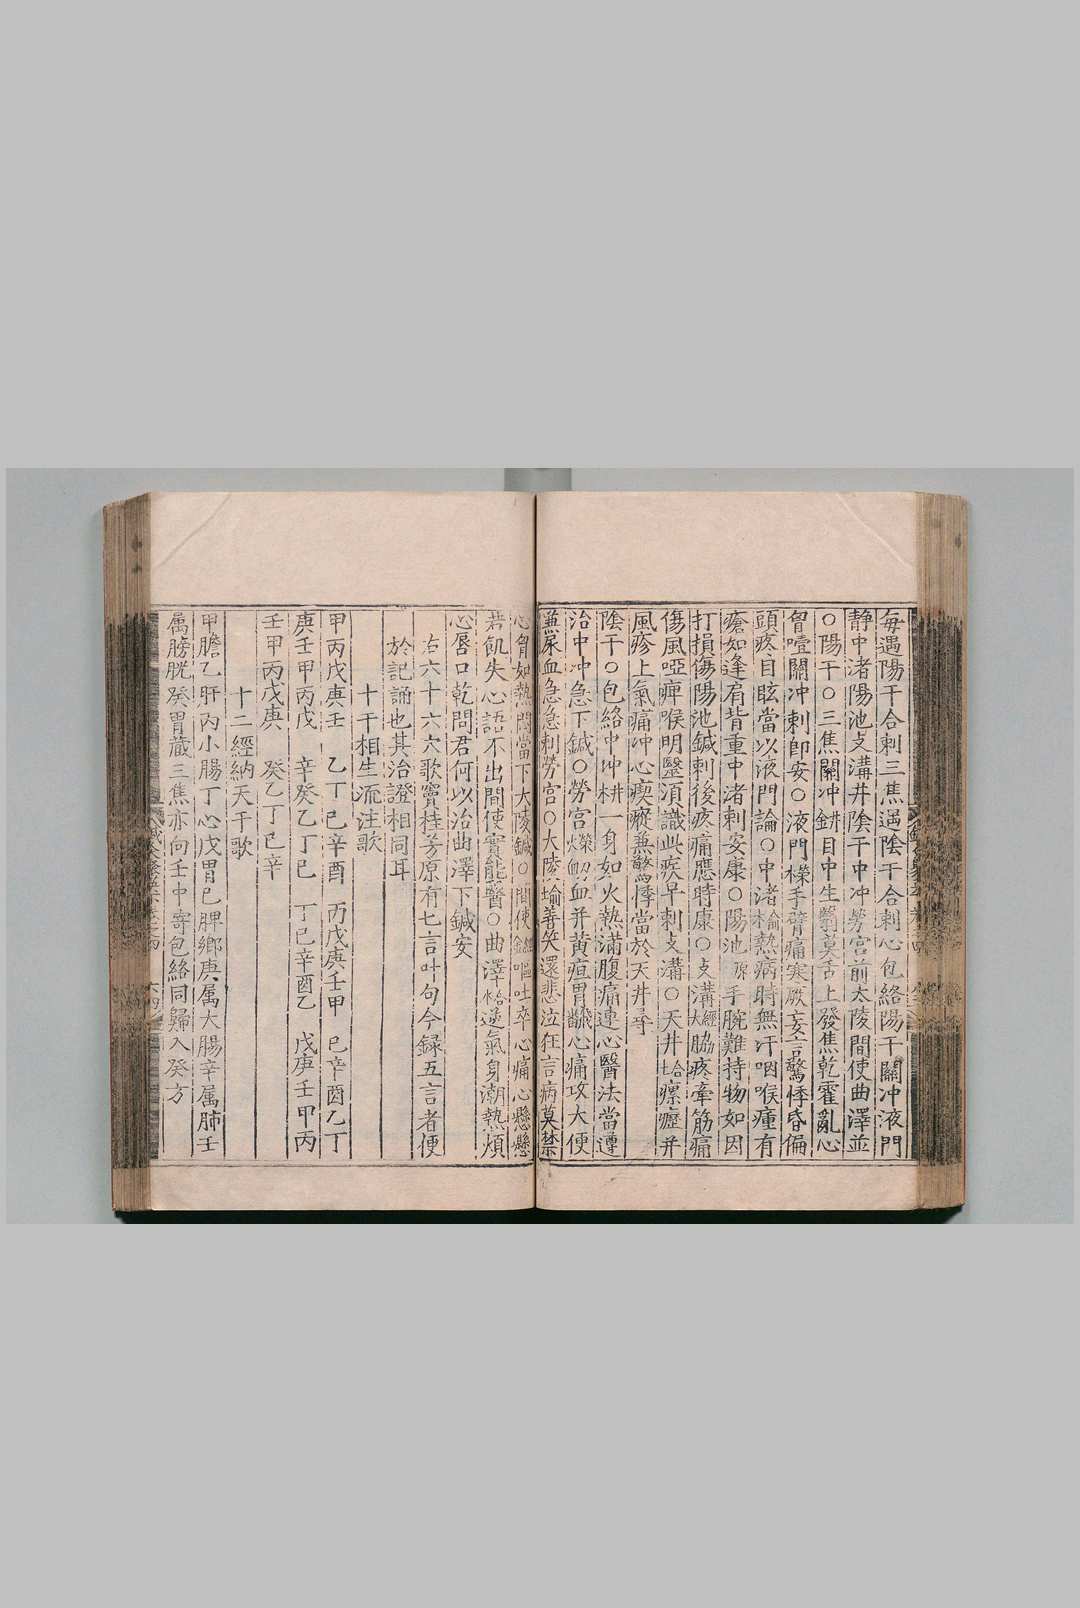 每遇陽干合刺三焦遇陰干合刺心包絡陽干關冲液門
静中渚陽池支溝井陰干中冲勞宫前太陵間使曲澤並
○陽干○三焦關冲鉼目中生翳莫舌上發焦乾霍亂心
胷噎關冲刺即安○液門榮手臂痛寒厥妄言驚悸昏偏
頭疼目眩當以液門論○中渚熱病時無汗咽喉瘇有
瘡如逢肩背重中渚刺安康○陽池原手腕難持物如因
打損傷陽池鍼刺後疼痛應時康○支溝經大脇疼牽筋痛
傷風啞痺喉明醫湏識此疾早刺支溝○天井瘰癧并
風疹上氣痛冲心瘈瘲兼驚悸當於天井尋
陰干○包絡中冲井一身如火熱滿腹痛連心醫法當遵
治中冲急下鍼○勞宫榮衂血并黄疸胃心痛攻大便
兼尿血急急刺勞宫○大陵善笑還悲泣狂言病莫禁
心胷如熱悶當下大陵鍼○間使經嘔吐卒心痛心懸懸
若飢失心語不出間使實能醫○曲澤合逆氣身潮熱煩
心唇口乾問君何以治曲澤下鍼安
右六十六穴歌竇桂芳原有七言叶句今録五言者便
於記誦也其治證相同耳
十干相生流注歌
甲丙戊庚壬 乙丁巳辛酉 丙戊庚壬甲 巳辛酉乙丁
庚壬甲丙戊 辛癸乙丁巳 丁巳辛酉乙 戊庚壬甲丙
壬甲丙戊庚 癸乙丁巳辛
十二經納天干歌
甲膽乙肝丙小腸丁心戊胃巳脾鄉庚属大腸辛属肺壬
属膀胱癸胃蔵三焦亦向壬中寄包絡同歸入癸方